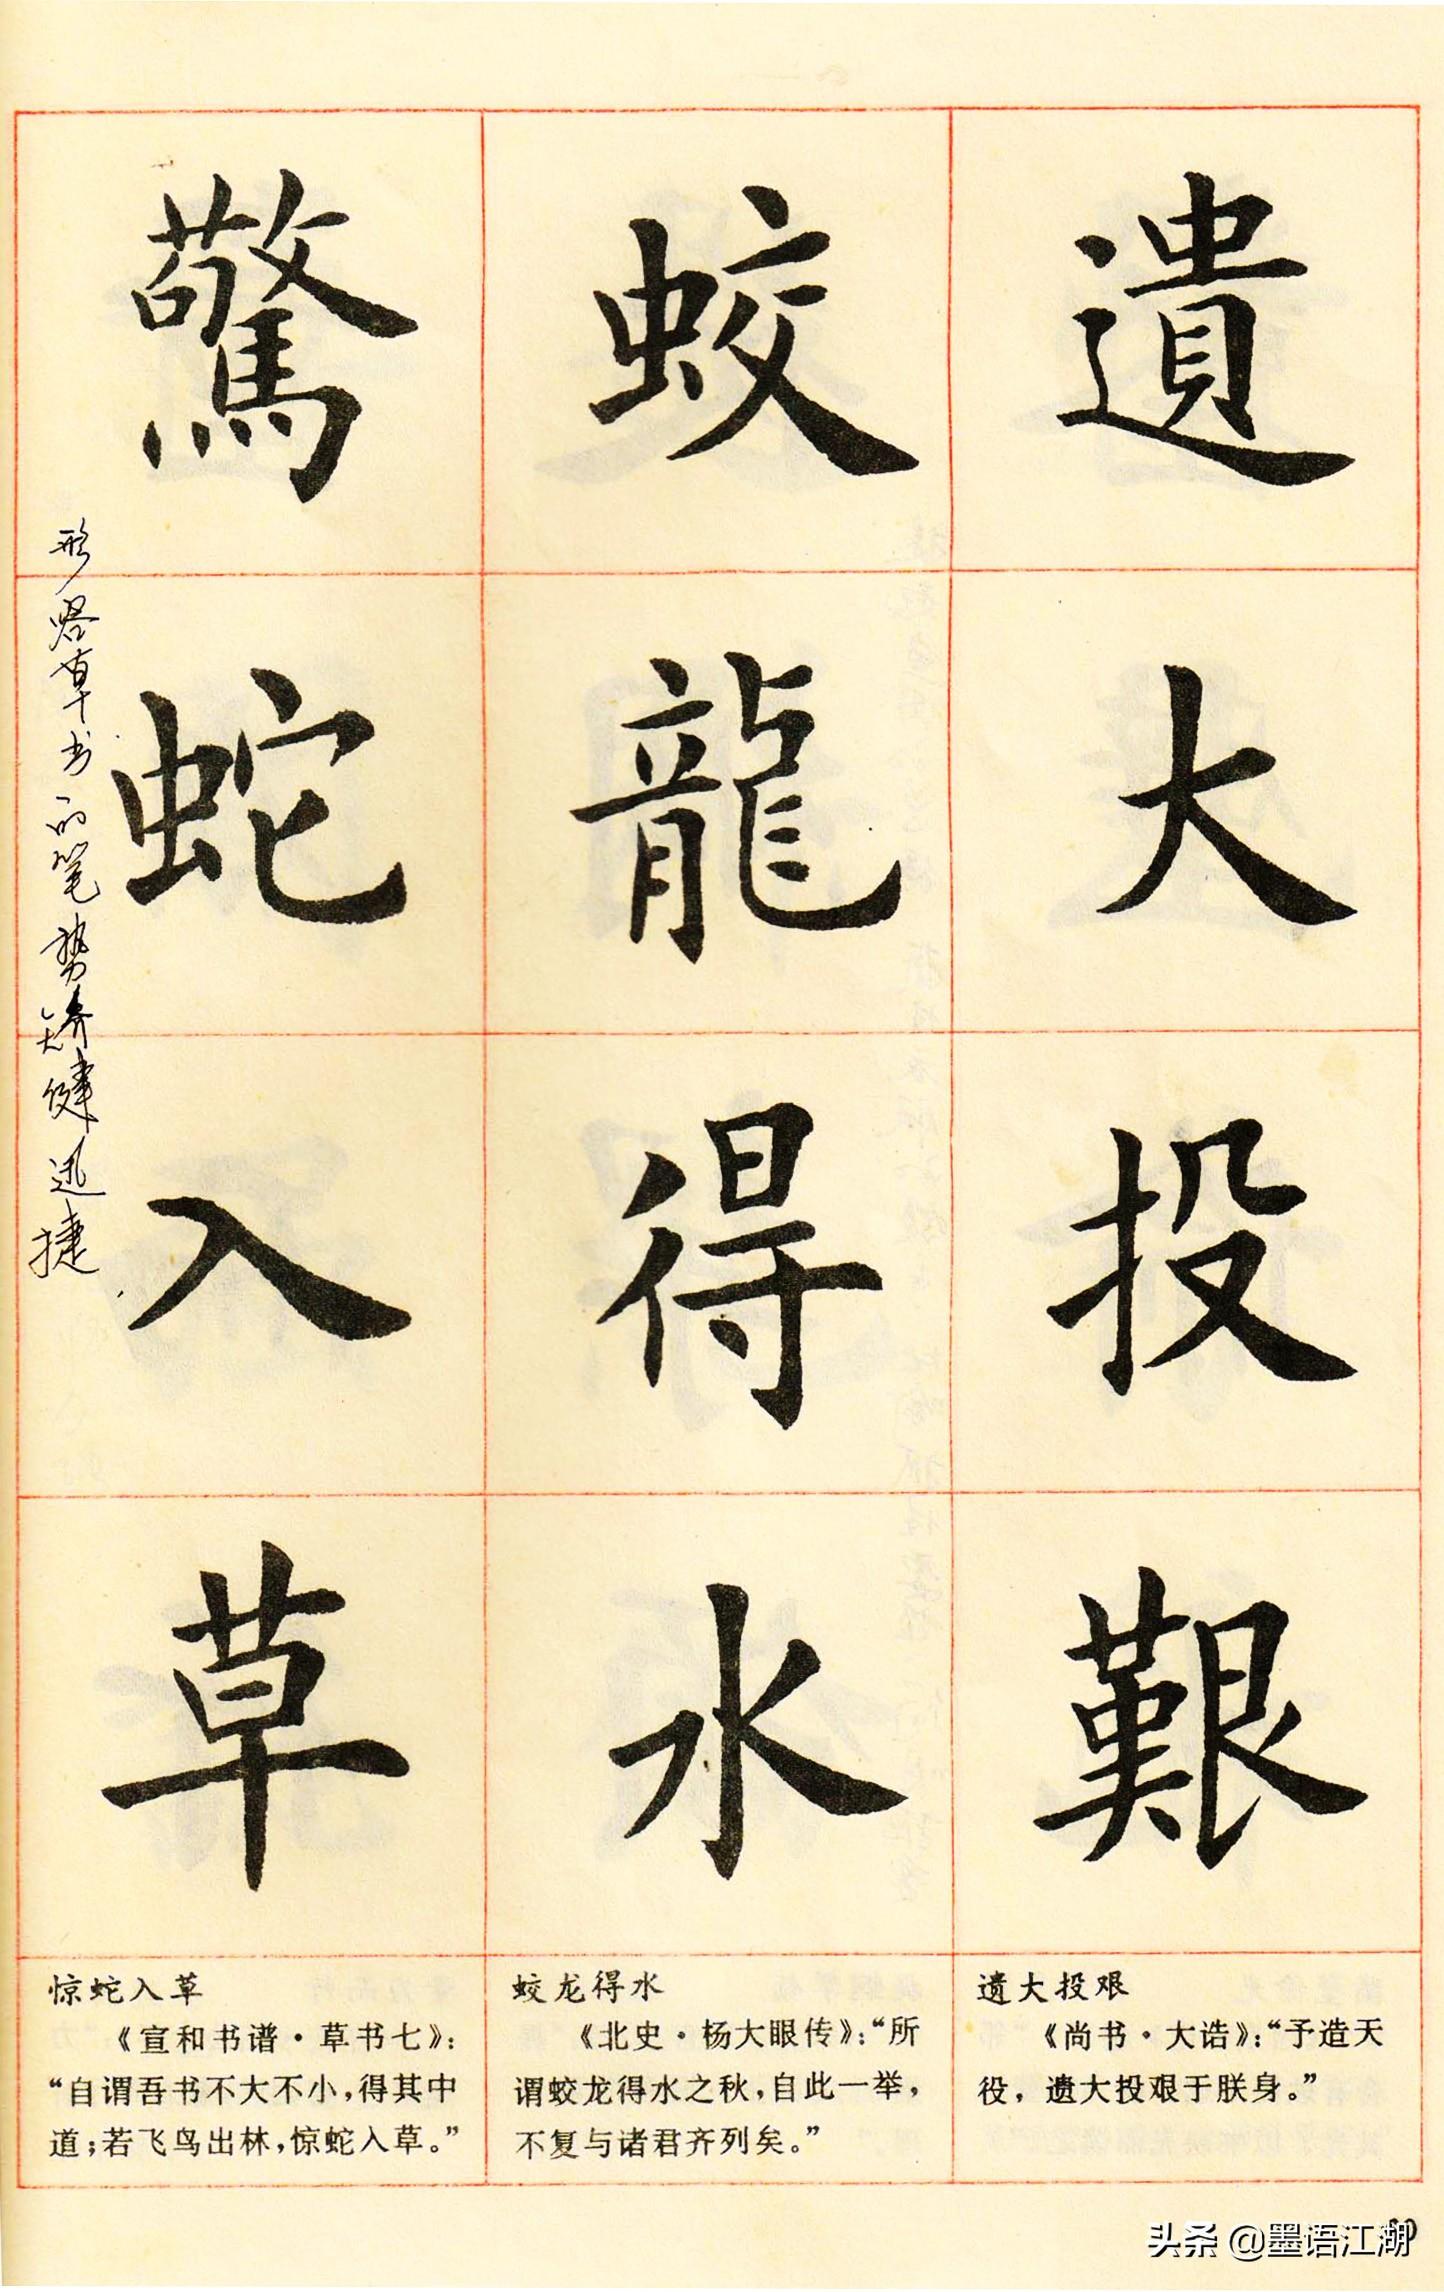 遺大投艱
蛟龍得水
驚蛇入草
形容草书的笔势矫健迅捷
遗大投艰
《尚书·大诰》:“予造天
役，遗大投艰于朕身。”
蛟龙得水
《北史·杨大眼传》:“所
谓蛟龙得水之秋,自此一举,
不复与诸君齐列矣。”
惊蛇入草
《宣和书谱·草书七》:
“自谓吾书不大不小,得其中
道;若飞鸟出林,惊蛇入草。”
头条 @墨语江湖